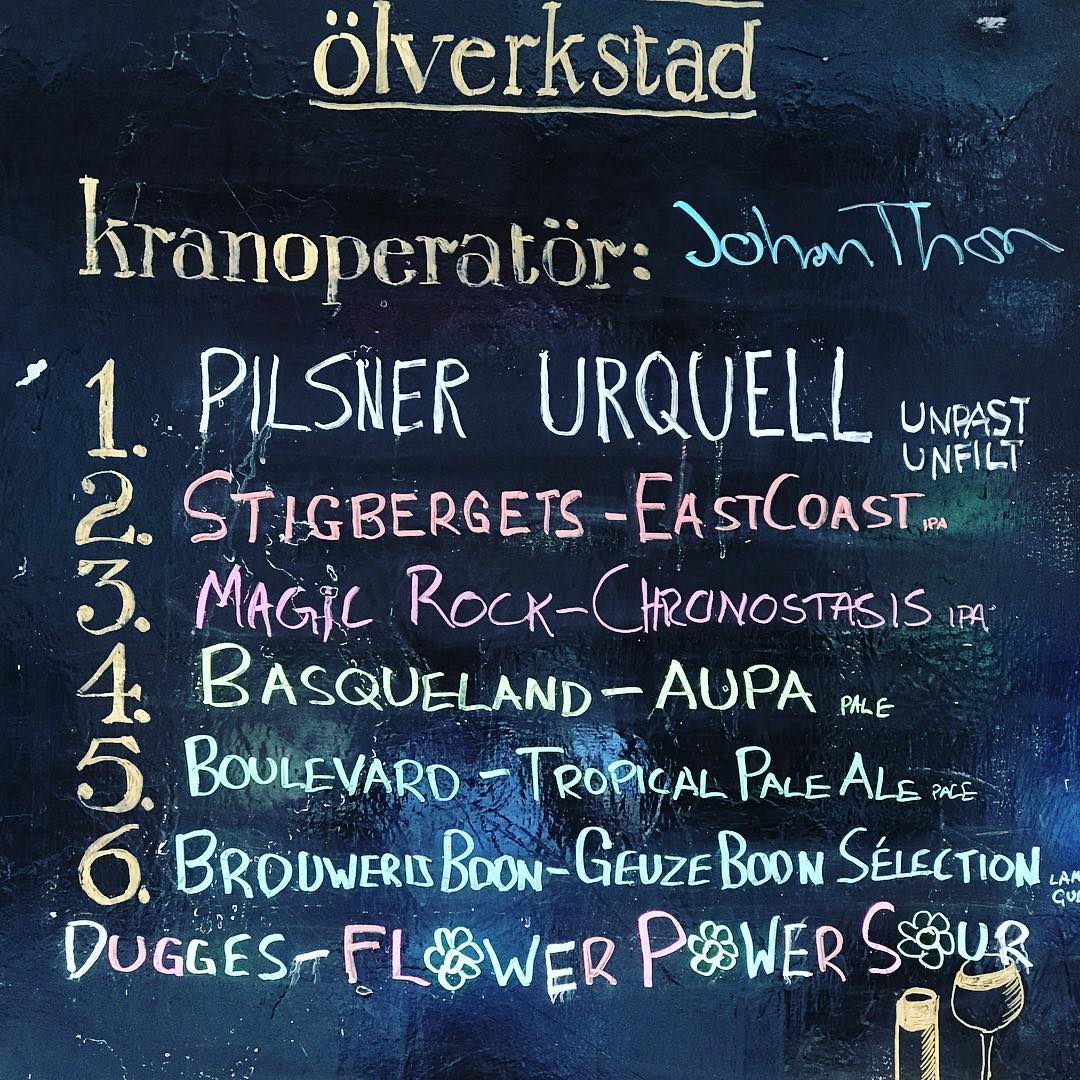 ölverkstad
kranoperatör: Johan Thor
1. PILSNER URQUELL UNPAST
UNFILT
2. STIGBERGETS - EASTCOAST IPA
3. MAGIC ROCK - CHRONOSTASIS IPA
4. BASQUELAND - AUPA PALE
5. BOULEVARD - TROPICAL PALE ALE PALE
6. BROUWERIJ BOON - GEUZE BOON SÉLECTION
DUGGES - FLOWER POWER SOUR